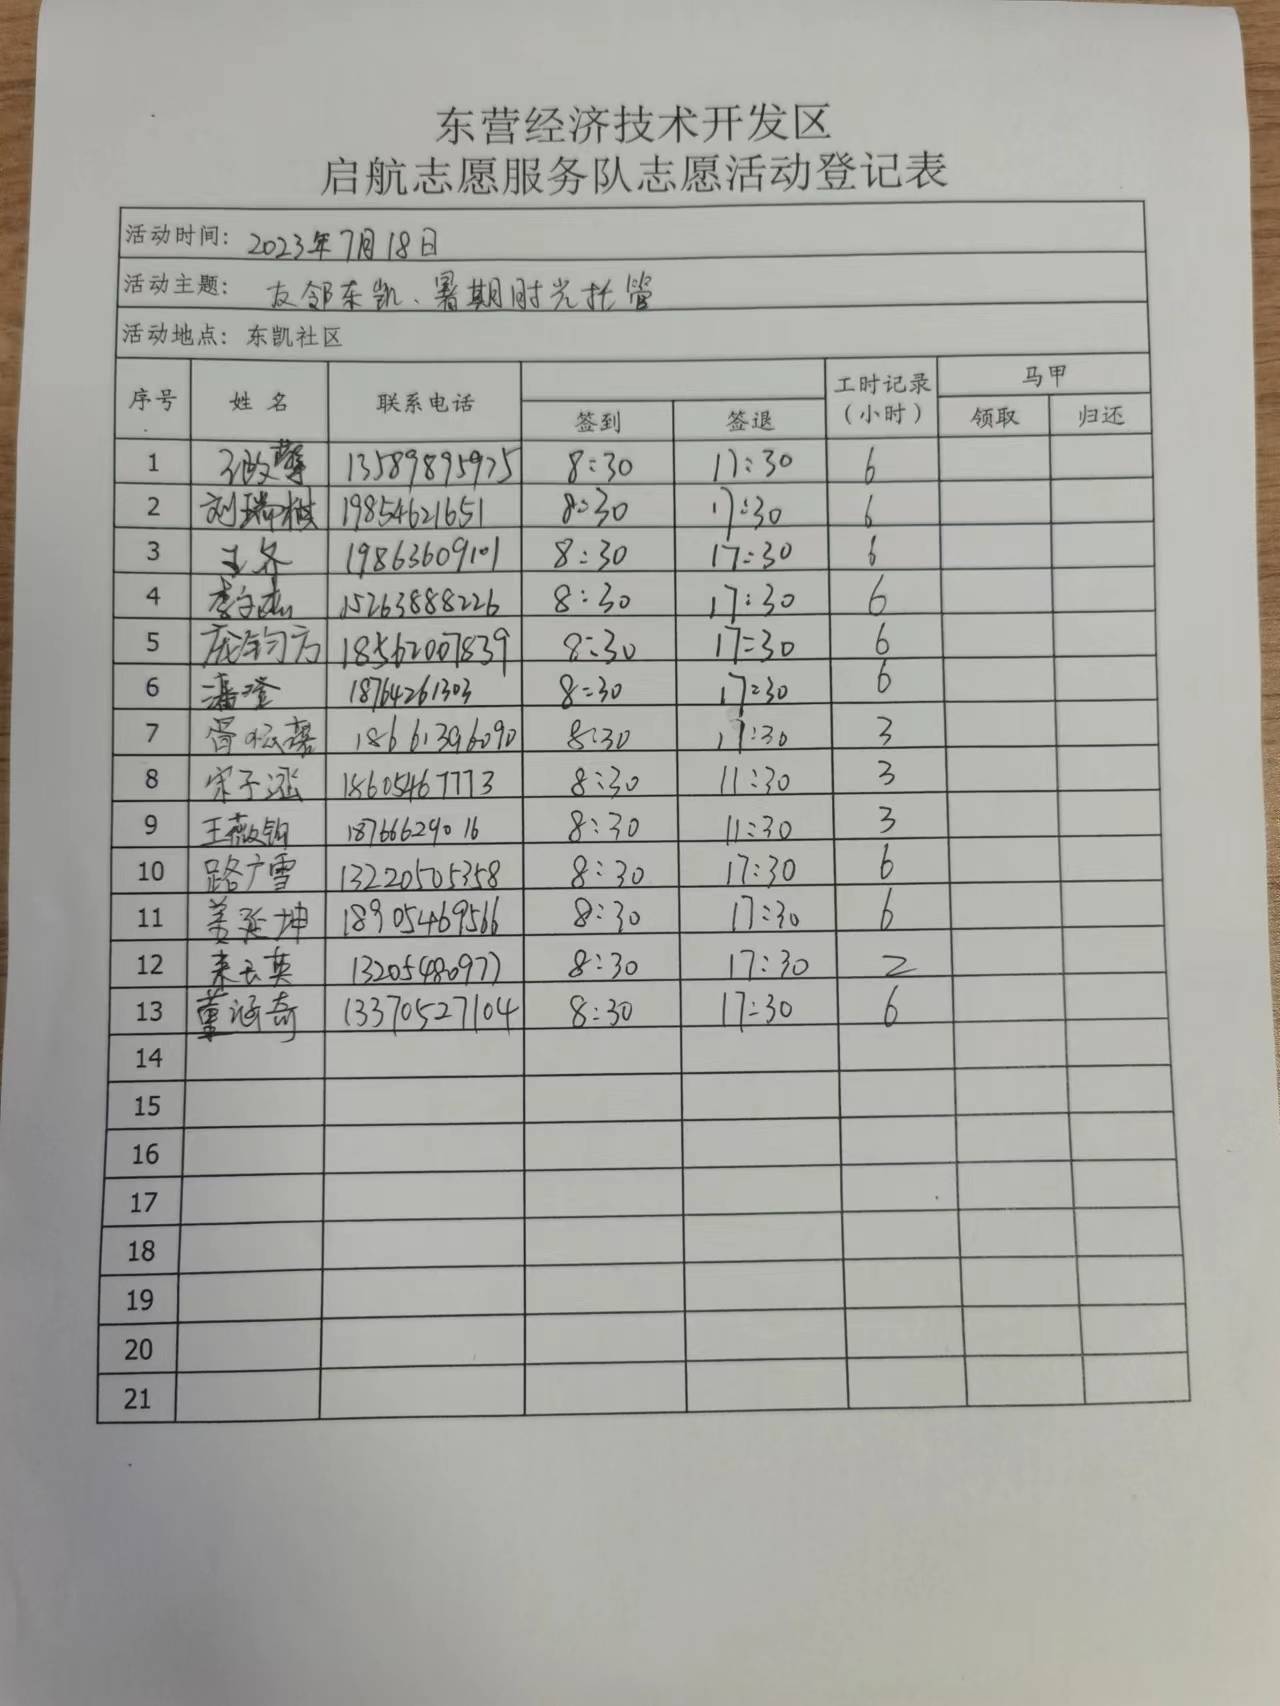 东营经济技术开发区
启航志愿服务队志愿活动登记表
活动时间: 2023年7月18日
活动主题: 友邻东凯、暑期时光托管
活动地点: 东凯社区
序号 姓名 联系电话 工时记录（小时） 马甲
签到 签退 领取 归还
1 13589895975 8:30 17:30 6
2 刘瑞楨 19854621651 8:30 17:30 6
3 王冬 19863609101 8:30 17:30 6
4 李 15263888226 8:30 17:30 6
5 庞钧方 18562007839 8:30 17:30 6
6 潘澄 18764261303 8:30 17:30 6
7 18661396090 8:30 17:30 3
8 宋子涵 18605467773 8:30 11:30 3
9 王薇钧 18766629016 8:30 11:30 3
10 路广雪 13220505358 8:30 17:30 6
11 姜延坤 18905469566 8:30 17:30 6
12 来云英 13205480977 8:30 17:30 2
13 董涵奇 13370527104 8:30 17:30 6
14
15
16
17
18
19
20
21